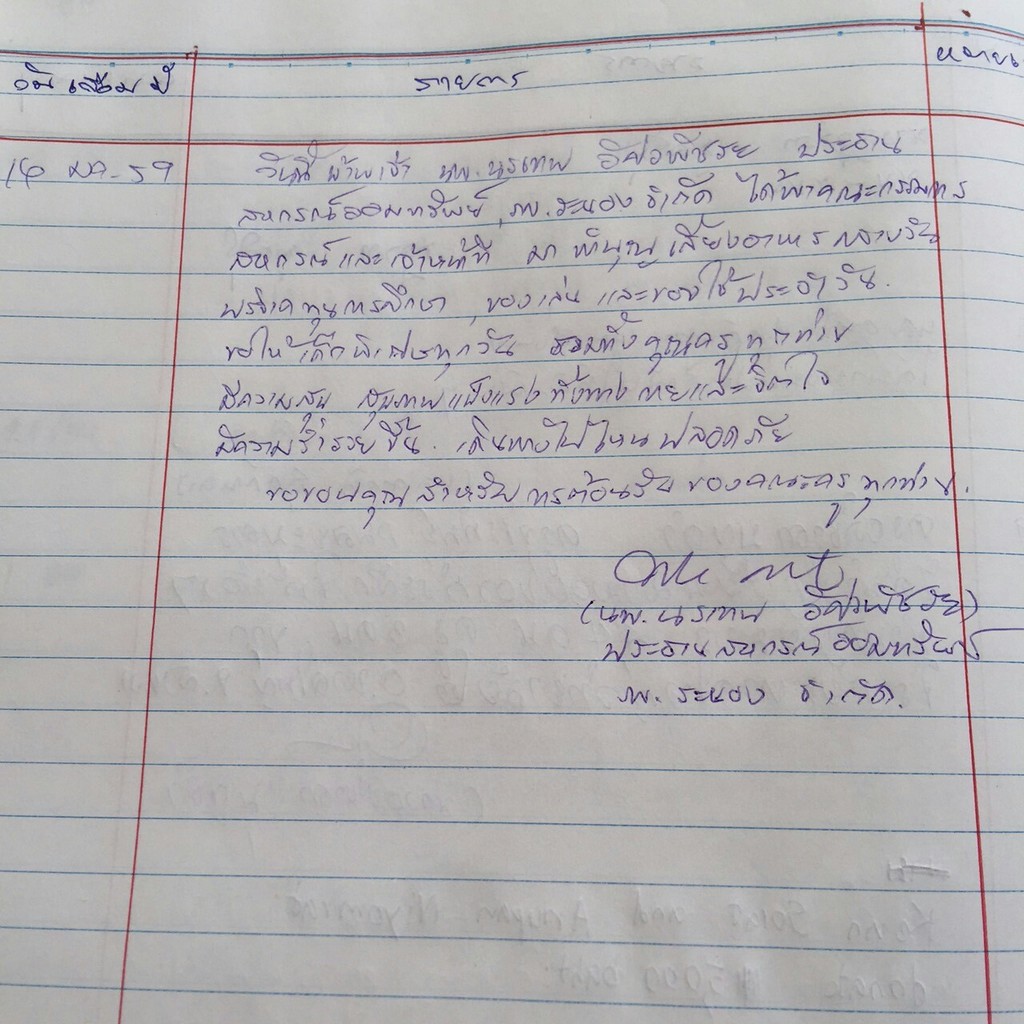 วดป รายการ หมายเ
14 มค. 59 วันนี้ ข้าพเจ้า นพ.นรเทพ อัศวพัชระ ประธาน
สหกรณ์ออมทรัพย์ รพ.ระนอง จำกัด ได้พาคณะกรรมการ
สหกรณ์และเจ้าหน้าที่ มาทำบุญเลี้ยงอาหารกลางวัน
บริจาคทุนการศึกษา, ของเล่น และของใช้ประจำวัน.
ขอให้เด็กพิเศษทุกวัน รวมทั้งคุณครูทุกท่าน
มีความสุข สุขภาพแข็งแรงทั้งทางกายและจิตใจ
มีความร่ำรวยขึ้น. เดินทางไปไหนปลอดภัย
ขอขอบคุณสำหรับการต้อนรับของคณะครูทุกท่าน.
(นพ.นรเทพ อัศวพัชระ)
ประธานสหกรณ์ออมทรัพย์
รพ. ระนอง จำกัด.